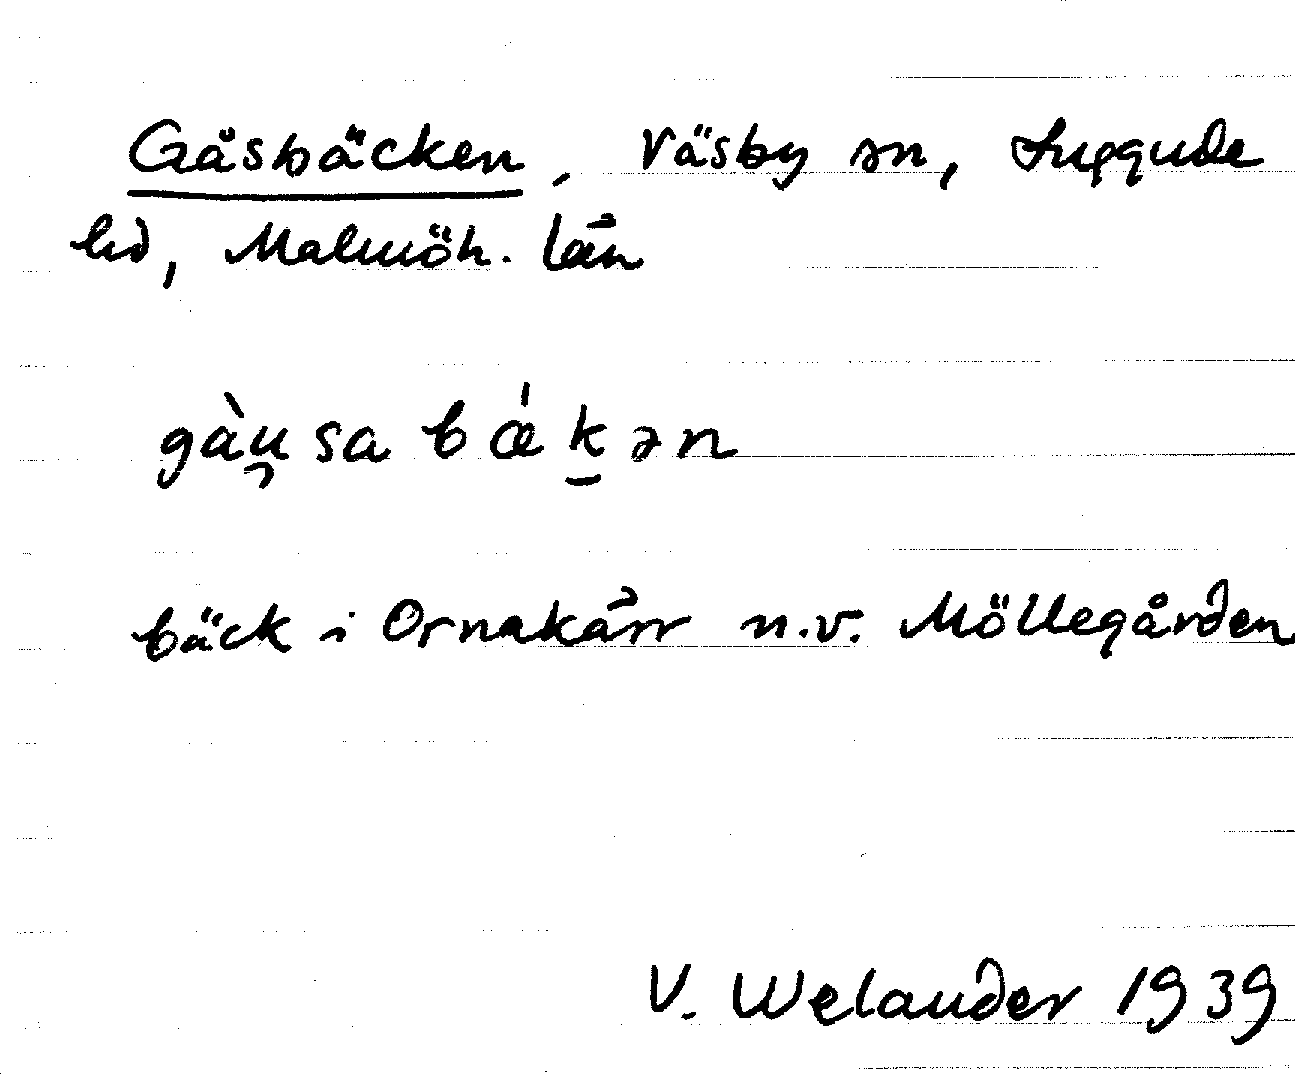 Gåsbäcken, Väsby sn, Luggude
hd, Malmöh. län
gàu̯sabǽk̠ən
bäck i Ornakärr n.v. Möllegården
V. Welander 1939